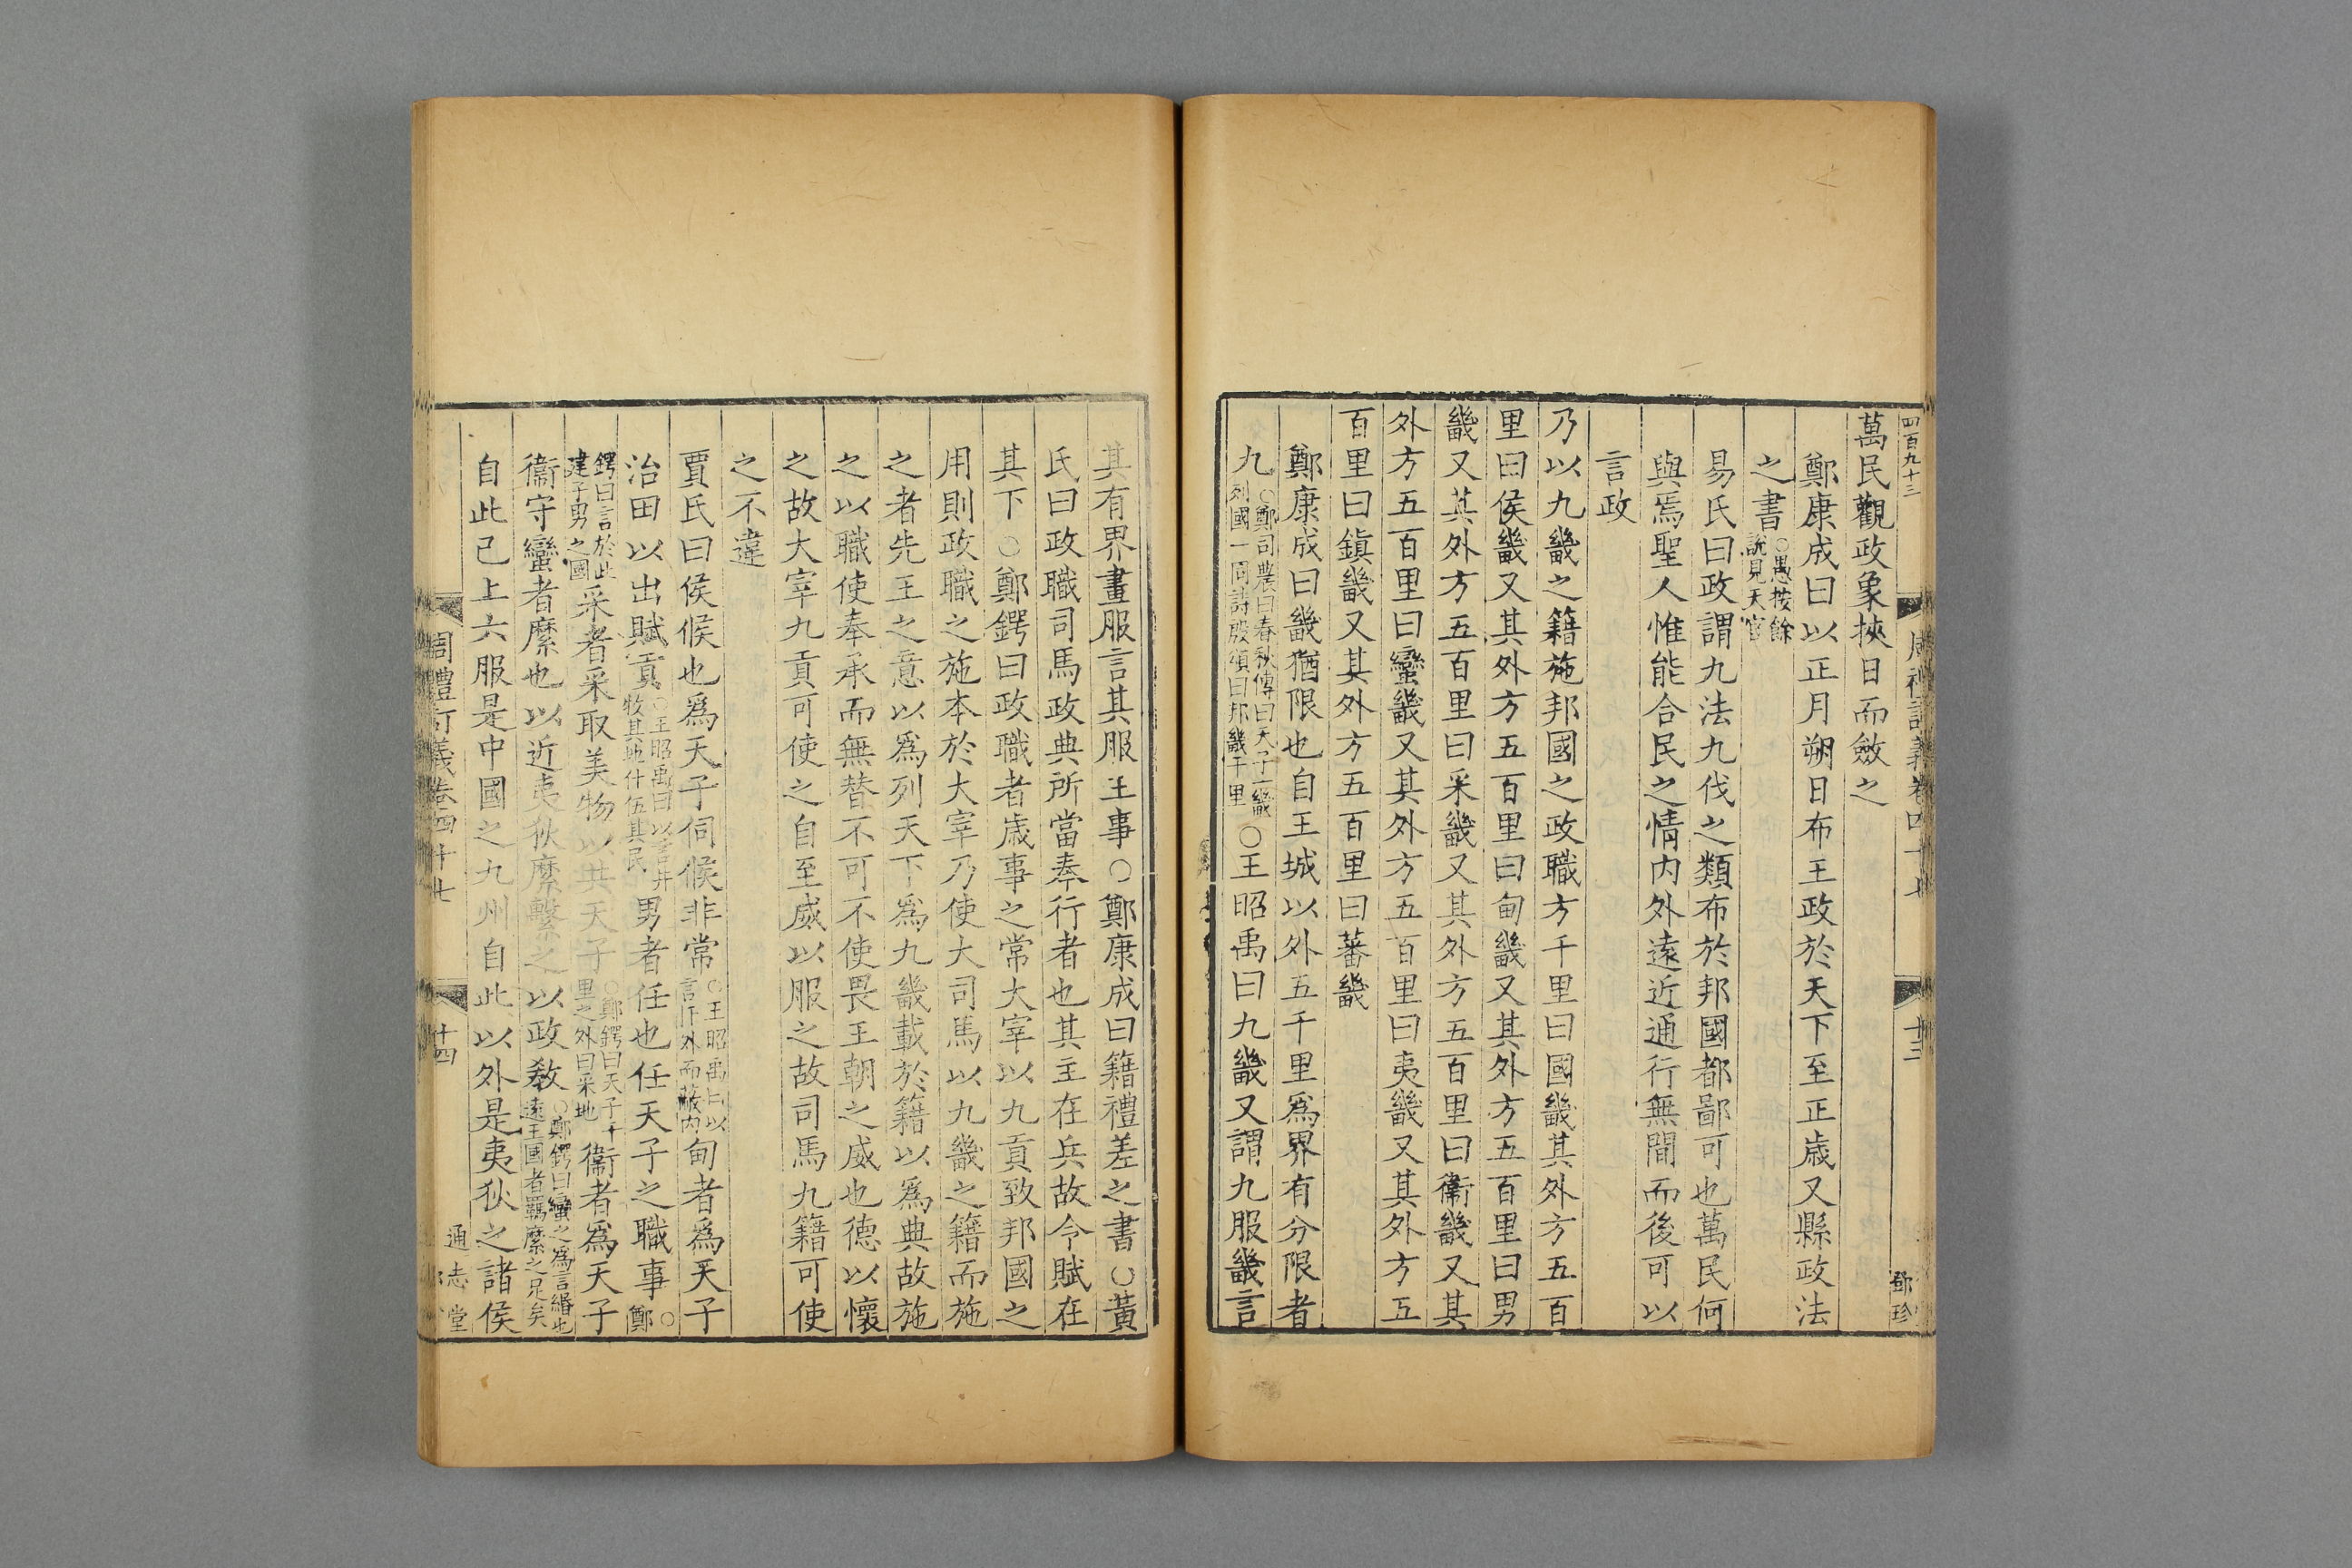 四百九十三
周禮訂義卷四十七
十三
鄧珍
萬民觀政象挾日而斂之
鄭康成曰以正月朔日布王政於天下至正歲又縣政法
之書○愚按餘說見天官
易氏曰政謂九法九伐之類布於邦國都鄙可也萬民何
與焉聖人惟能合民之情内外遠近通行無間而後可以
言政
乃以九畿之籍施邦國之政職方千里曰國畿其外方五百
里曰侯畿又其外方五百里曰甸畿又其外方五百里曰男
畿又其外方五百里曰采畿又其外方五百里曰衞畿又其
外方五百里曰蠻畿又其外方五百里曰夷畿又其外方五
百里曰鎮畿又其外方五百里曰蕃畿
鄭康成曰畿猶限也自王城以外五千里爲界有分限者
九○鄭司農曰春秋傳曰天子一畿列國一同詩殷頌曰邦畿千里○王昭禹曰九畿又謂九服畿言
其有界畫服言其服王事○鄭康成曰籍禮差之書○黃
氏曰政職司馬政典所當奉行者也其主在兵故令賦在
其下○鄭鍔曰政職者歳事之常大宰以九貢致邦國之
用則政職之施本於大宰乃使大司馬以九畿之籍而施
之者先王之意以爲列天下爲九畿載於籍以爲典故施
之以職使奉承而無替不可不使畏王朝之威也德以懷
之故大宰九貢可使之自至威以服之故司馬九籍可使
之不違
賈氏曰侯候也爲天子伺候非常○王昭禹曰以言斥外而蔽内甸者爲天子
治田以出賦貢○王昭禹曰以言井牧其地什伍其民男者任也任天子之職事○鄭
鍔曰言於此建子男之國采者采取美物以共天子○鄭鍔曰天子千里之外曰采地衞者爲天子
衞守蠻者縻也以近夷狄縻繫之以政教○鄭鍔曰蠻之爲言緡也遠王國者羈縻之足矣
自此已上六服是中國之九州自此以外是夷狄之諸侯
周禮訂義卷四十七
十四
通志堂